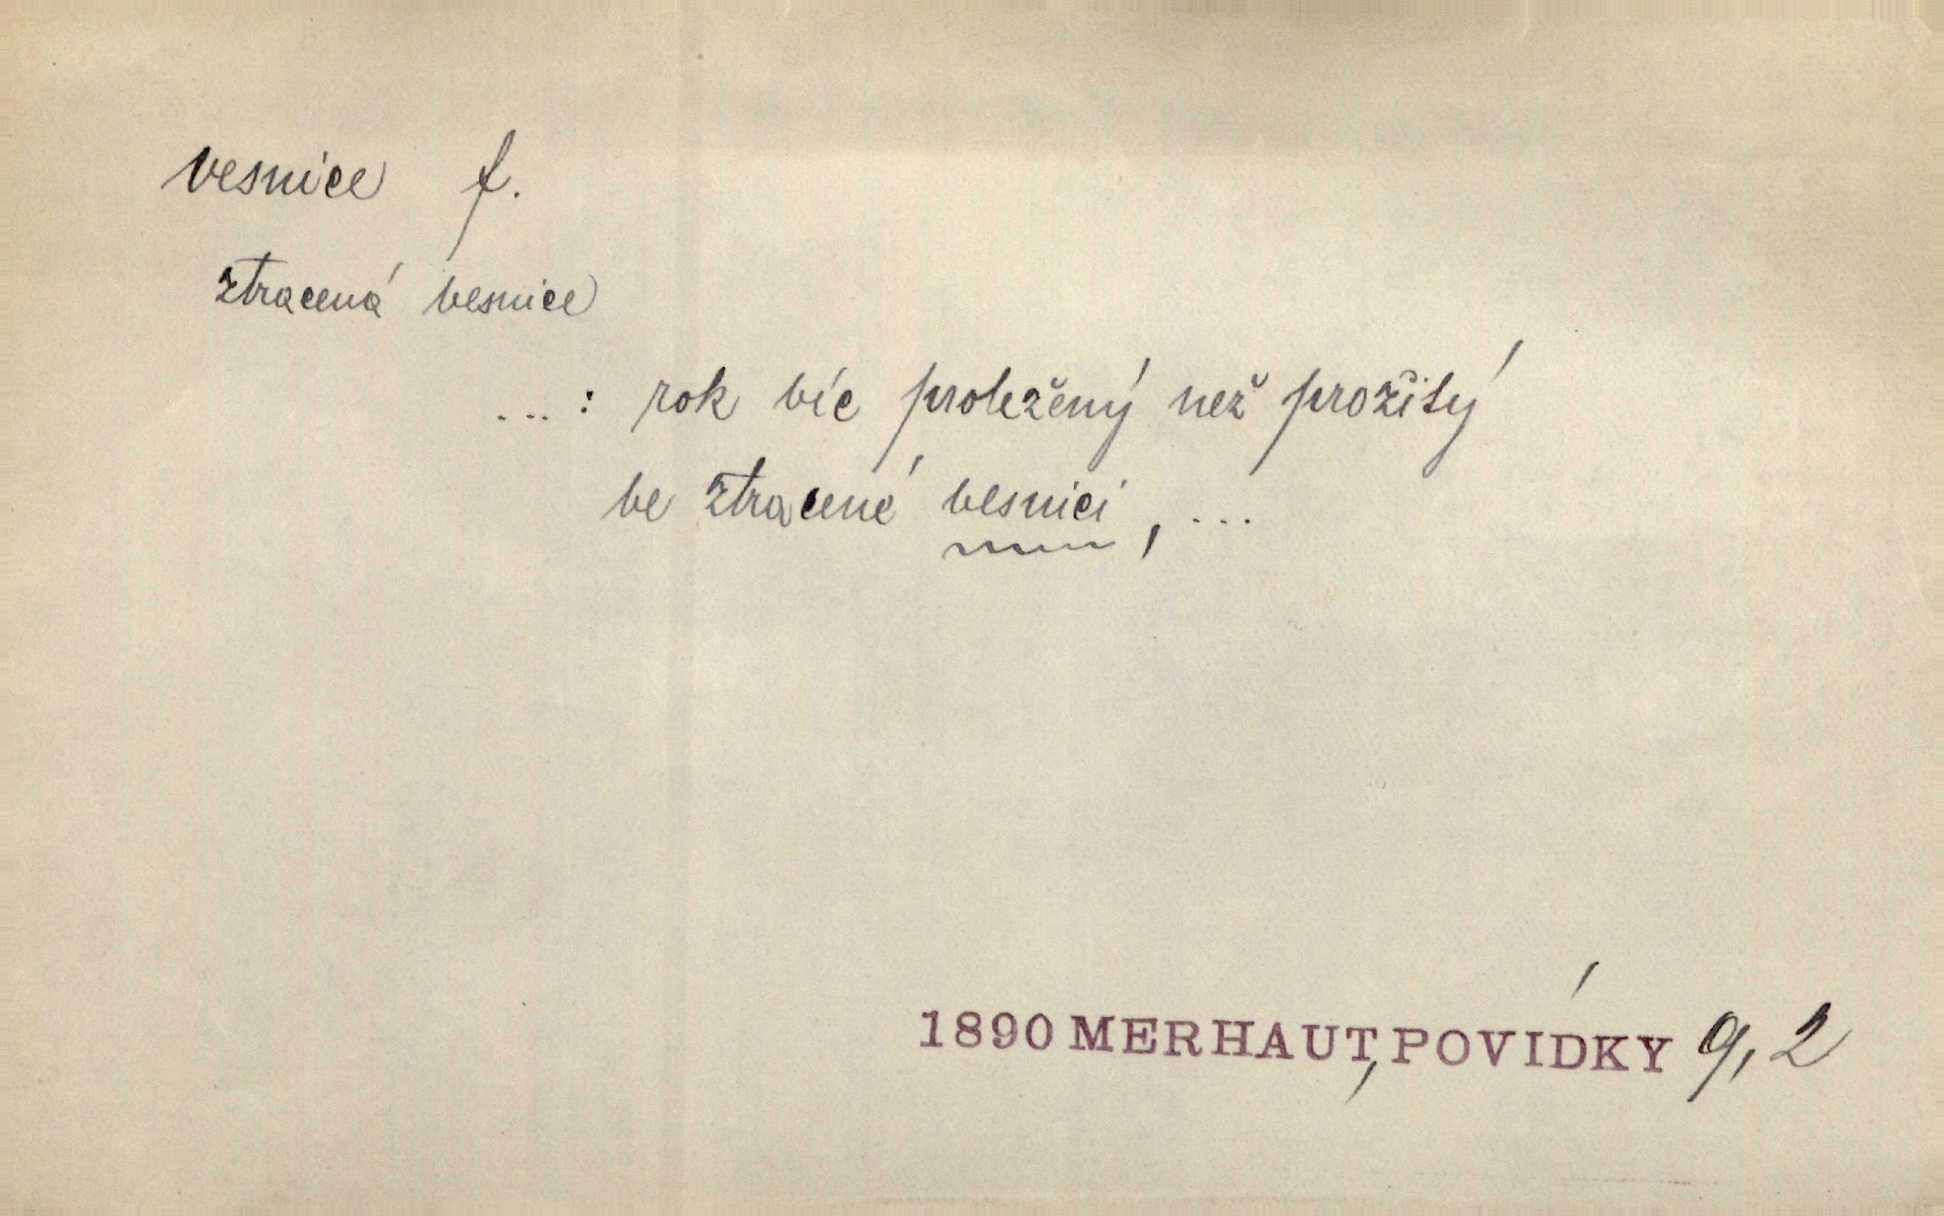 vesnice f.
ztracená vesnice
...: rok víc proležený než prožitý
ve ztracené vesnici, ...
1890 MERHAUT, POVÍDKY 9, 2